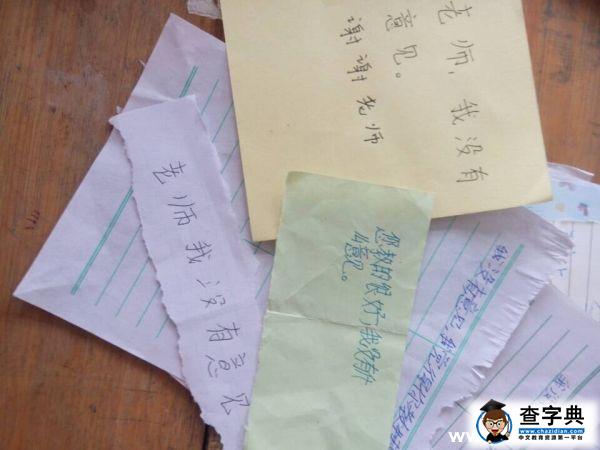 老师，我没有
意见。
谢谢老师
老师我没有意见
您教的很好，我没有什
么意见。
我没有意见，我
查字典
www.chazidian.com
中文教育资源第一平台